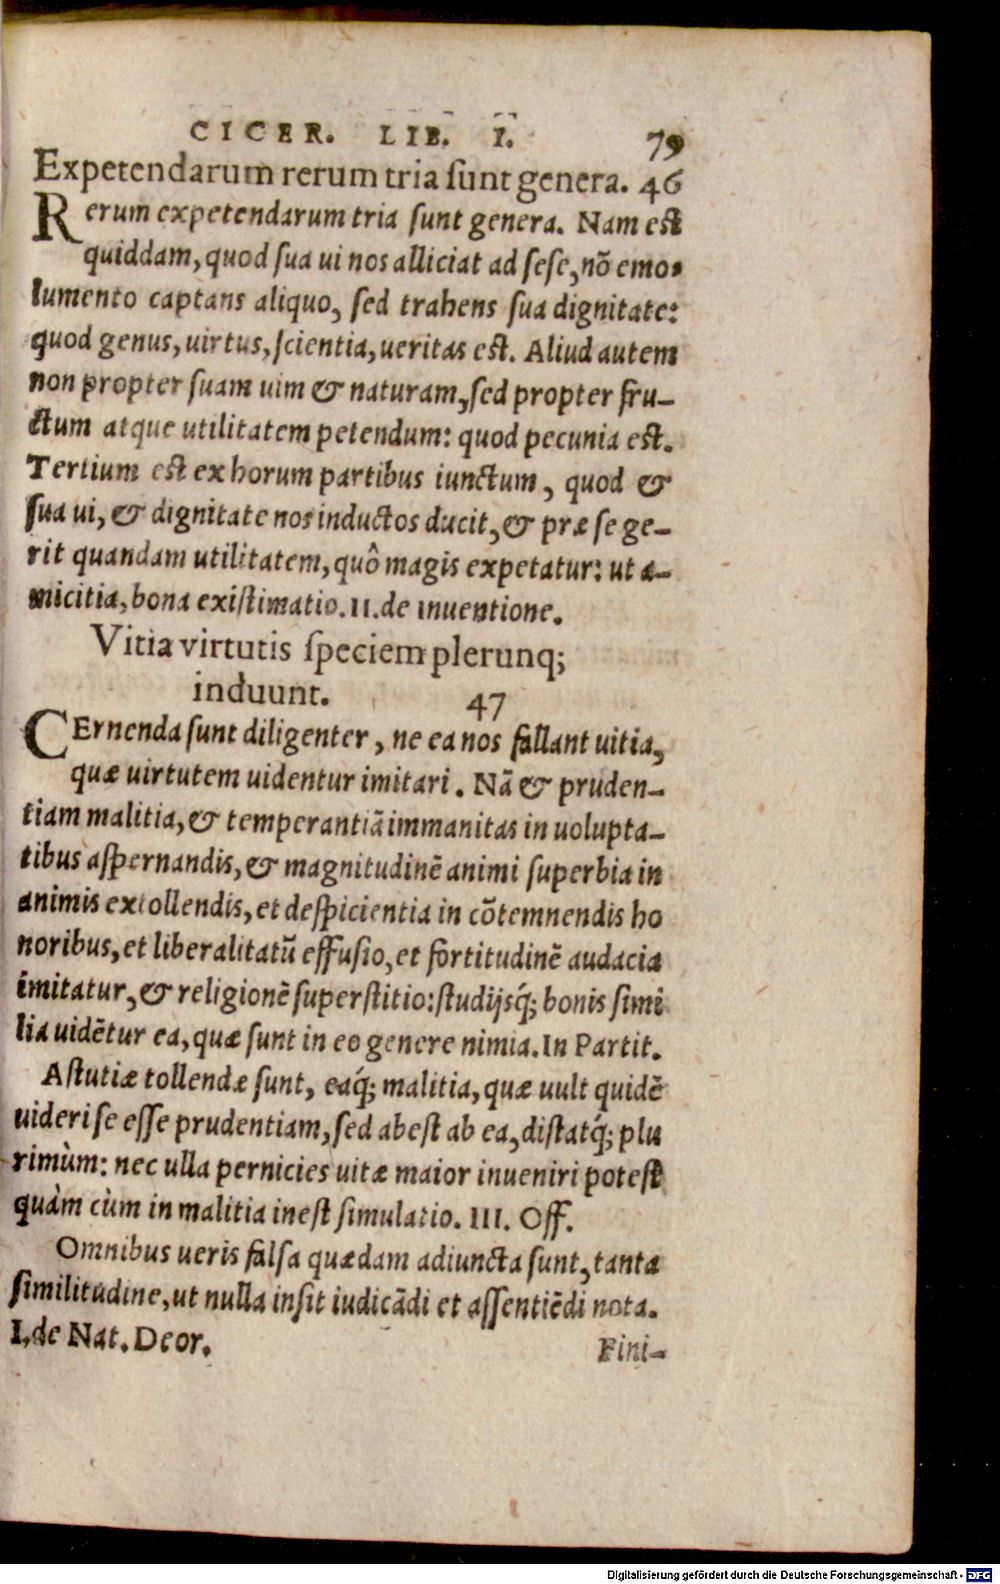 CICER. LIB. I. 79
Expetendarum rerum tria sunt genera. 46
Rerum expetendarum tria sunt genera. Nam est
quiddam, quod sua ui nos alliciat ad sese, nõ emo-
lumento captans aliquo, sed trahens sua dignitate:
quod genus, uirtus, scientia, ueritas est. Aliud autem
non propter suam uim & naturam, sed propter fru-
ctum atque utilitatem petendum: quod pecunia est.
Tertium est ex horum partibus iunctum, quod &
sua ui, & dignitate nos inductos ducit, & præ se ge-
rit quandam utilitatem, quô magis expetatur: ut a-
micitia, bona existimatio. II. de Inuentione.
Vitia virtutis speciem plerunq;
induunt. 47
CErnenda sunt diligenter, ne ea nos fallant uitia,
quæ uirtutem uidentur imitari. Nã & pruden-
tiam malitia, & temperantiã immanitas in uolupta-
tibus aspernandis, & magnitudinẽ animi superbia in
animis extollendis, et despicientia in cõtemnendis ho
noribus, et liberalitatũ effusio, et fortitudinẽ audacia
imitatur, & religionẽ superstitio: studijsq́; bonis simi
lia uidẽtur ea, quæ sunt in eo genere nimia. In Partit.
Astutiæ tollendæ sunt, eaq́; malitia, quæ uult quidẽ
uideri se esse prudentiam, sed abest ab ea, distatq́; plu
rimùm: nec ulla pernicies uitæ maior inueniri potest
quàm cùm in malitia inest simulatio. III. Off.
Omnibus ueris falsa quædam adiuncta sunt, tanta
similitudine, ut nulla insit iudicãdi et assentiẽdi nota.
I. de Nat. Deor. Fini-
Digitalisierung gefördert durch die Deutsche Forschungsgemeinschaft - DFG